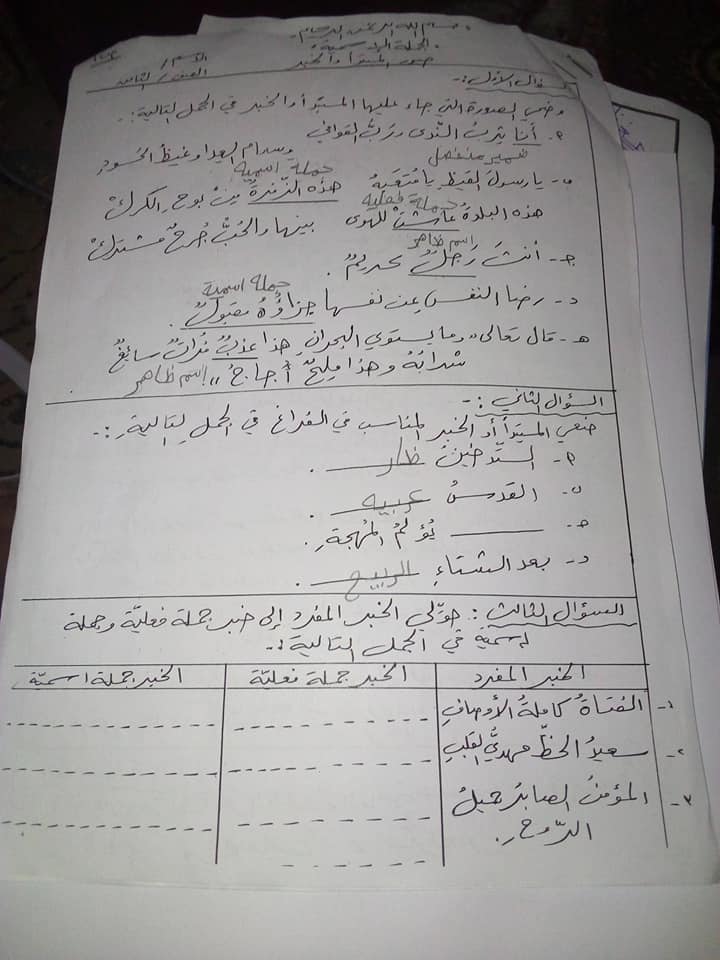 بسم الله الرحمن الرحيم
الجملة الاسمية
صور المبتدأ والخبر
الاسم /
الصف / الثامن
السؤال الأول :-
وضحي الصورة التي جاء عليها المبتدأ والخبر في الجمل التالية :-
أ- أنا تِربُ النّدى وربُّ القوافي وسمام العدا وغيظُ الحسود
ضمير منفصل
جملة اسمية
ب- يا رسول القيظ يا متعبهُ هذه الزّفرةُ مِنْ بوحِ الكركْ
جملة فعلية
هذه البلدةُ عاشتْ للهوى بينها والحُبُّ جُرحٌ مشتركْ
اسم ظاهر
جـ- أنتَ رَجُلٌ كريمٌ .
جملة اسمية
د- رضا النفسِ عن نفسها جزاؤُهُ مقبولٌ .
هـ- قال تعالى " وما يستوي البحرانِ هذا عذبٌ فُراتٌ سائِغٌ
شرابُهُ وهذا مِلحٌ أُجاجٌ " اسم ظاهر
السؤال الثاني :-
ضعي المبتدأ أو الخبر المناسب في الفراغ في الجملِ التاليةِ :-
أ- التّدخينُ ضار .
ب- القدسُ عربيه .
جـ- ــــــــ يُؤلمُ المُهجةِ .
د- بعد الشتاءِ الربيع .
السؤال الثالث : حوّلي الخبر المفرد إلى خبر جملة فعليّة وجملة
اسمية في الجمل التالية :-
الخبر المفرد الخبر جملة فعليّة الخبر جملة اسميّة
١- الفتاةُ كاملةُ الأوصافِ
٢- سعيدُ الحظّ مهديُّ القلبِ
٣- المؤمنُ الصابرُ جميلُ
الرّوحِ .